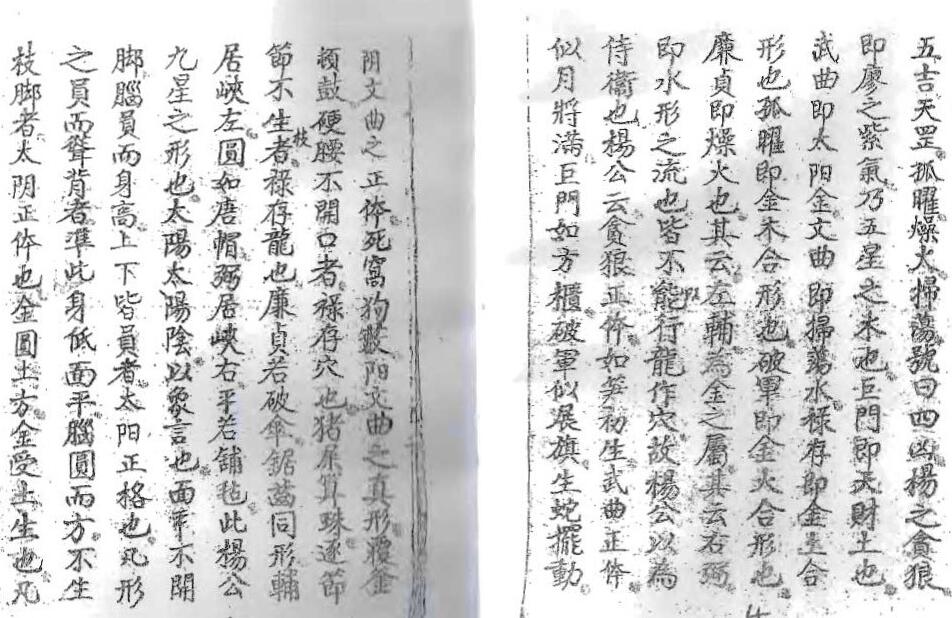 五吉天罡孤曜燥火掃蕩號曰四凶楊之貪狼
即廖之紫氣乃五星之木也巨門即天財土也
武曲即太阳金文曲即掃蕩水禄存即金土合
形也孤曜即金木合形也破軍即金火合形也
廉貞即燥火也其云左輔為金之屬其云右弼
即水形之流也皆不能行龍作穴故楊公以為
侍衛也楊公云貪狼正体如笋初生武曲正体
似月將满巨門如方櫃破軍似展旗生蛇擺動
阴文曲之正体死窩狗皺阳文曲之真形覆金
頓鼓硬腰不開口者禄存穴也猪屎算珠逐節
節不生枝者禄存龍也廉貞若破傘鋸齒同形輔
居峽左圓如唐帽弼居峽右平若舖毡此楊公
九星之形也太陽太陽陰以象言也面平不開
脚腦員而身高上下皆員者太阳正格也凡形
之員而聳背者準此身低面平腦圓而方不生
枝脚者太阴正体也金圓土方金受土生也凡